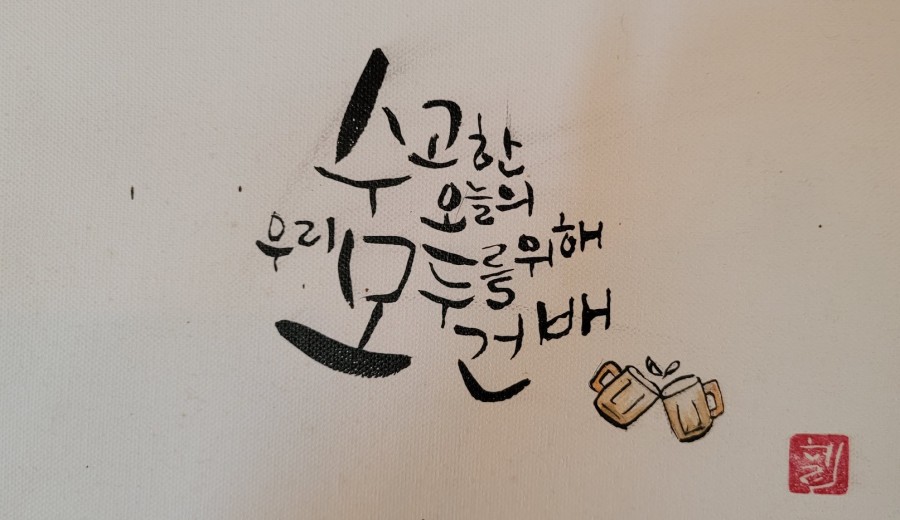 수고한
오늘의
우리 모두를 위해
건배